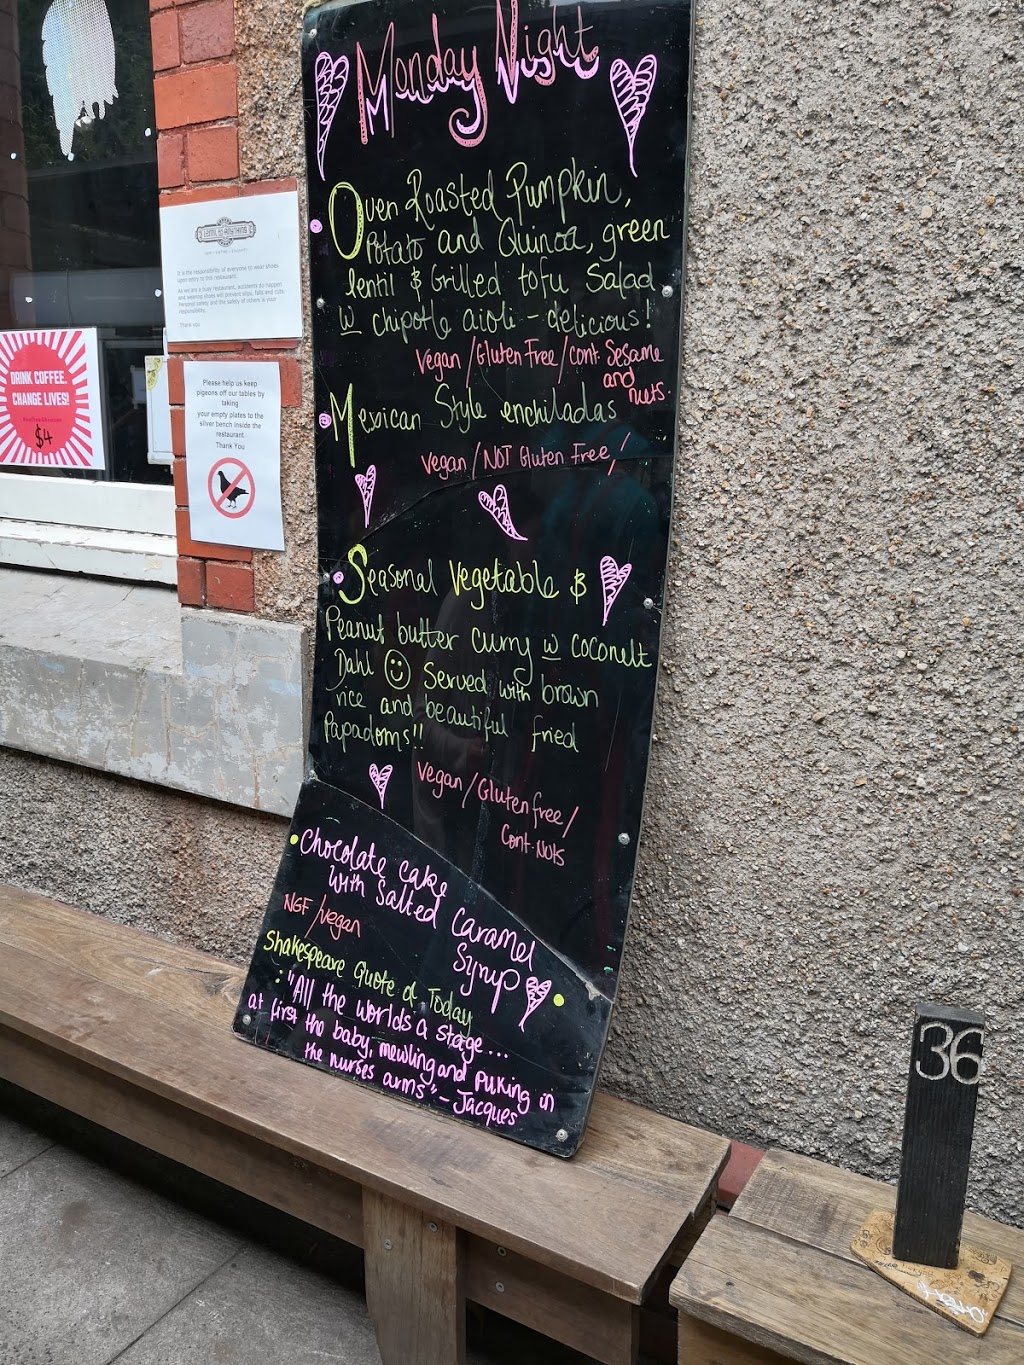 Monday Night
Oven Roasted Pumpkin,
Potato and Quinoa, green
lentil & Grilled tofu Salad
w chipotle aioli - delicious!
Vegan/Gluten Free/cont. Sesame
and
nuts.
Mexican Style enchiladas
Vegan/NOT Gluten Free/
Seasonal Vegetable &
Peanut butter curry w coconut
Dahl Served with brown
rice and beautiful fried
Papadoms!!
Vegan/Gluten free/
Cont. Nuts
Chocolate cake
With Salted Caramel
Syrup
NGF/Vegan
Shakespeare Quote of Today
: "All the worlds a stage...
at first the baby, mewling and puking in
the nurses arms" - Jacques
LENTIL AS ANYTHING
It is the responsibility of everyone to wear shoes
upon entry to this restaurant.
As we are a busy restaurant, accidents do happen
and wearing shoes will prevent slips, falls and cuts.
Personal safety and the safety of others is your
responsibility.
Thank you
DRINK COFFEE.
CHANGE LIVES!
$4
Please help us keep
pigeons off our tables by
taking
your empty plates to the
silver bench inside the
restaurant
Thank You
36